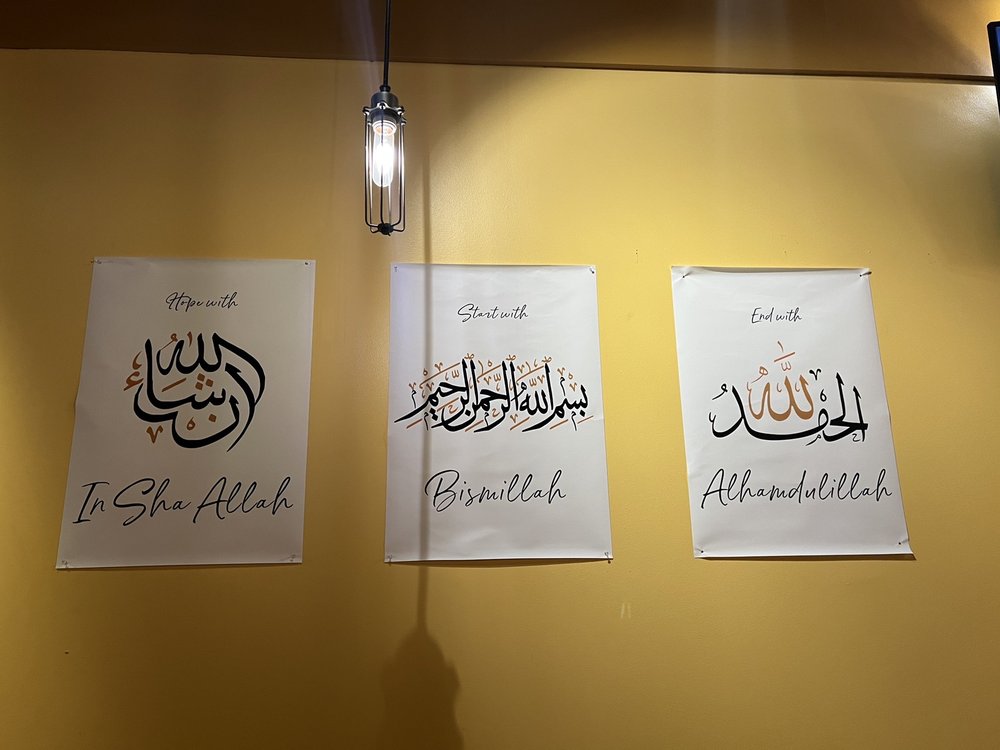 Hope with
إن شاء الله
In Sha Allah
Start with
بِسْمِ اللَّهِ الرَّحْمَنِ الرَّحِيمِ
Bismillah
End with
الحمد لله
Alhamdulillah